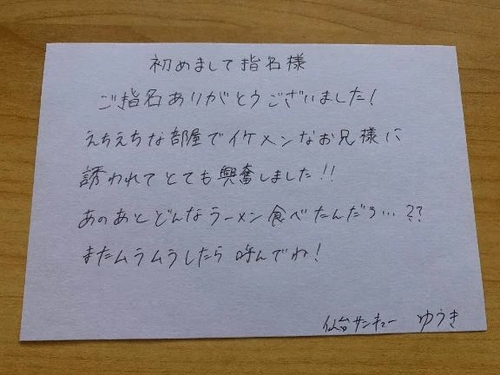 初めまして指名様
ご指名ありがとうございました!
えちえちな部屋でイケメンなお兄様に
誘われてとても興奮しました!!
あのあとどんなラーメン食べたんだろ…??
またムラムラしたら呼んでね!
仙台サンキュー ゆうき